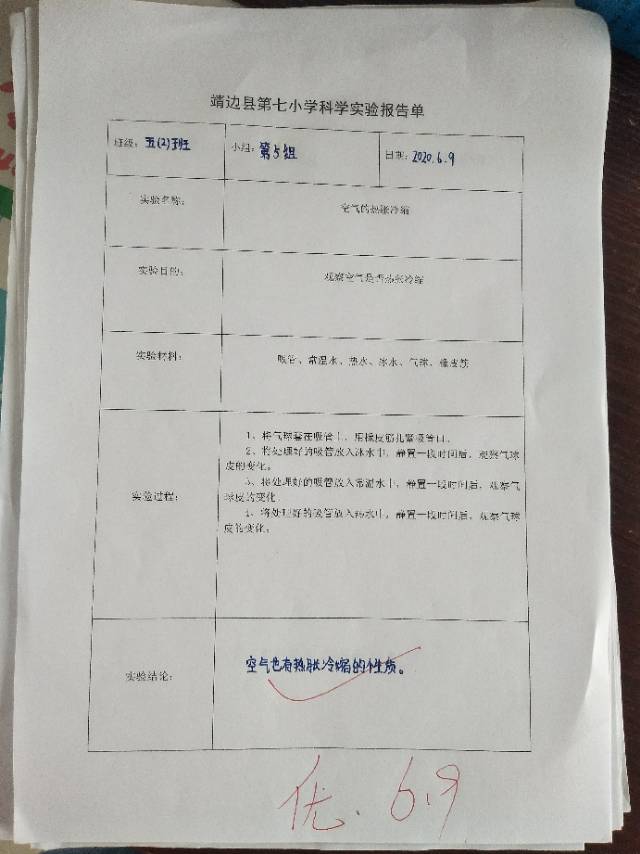 靖边县第七小学科学实验报告单
班级：五(2)班 小组：第5组 日期：2020.6.9
实验名称： 空气的热胀冷缩
实验目的： 观察空气是否热胀冷缩
实验材料： 吸管、常温水、热水、冰水、气球、橡皮筋
实验过程：
1、将气球套在吸管上，用橡皮筋扎紧吸管口。
2、将处理好的吸管放入冰水中，静置一段时间后，观察气球
皮的变化。
3、将处理好的吸管放入常温水中，静置一段时间后，观察气
球皮的变化
4、将处理好的吸管放入热水中，静置一段时间后，观察气球
皮的变化。
实验结论： 空气也有热胀冷缩的性质。
优. 6.9